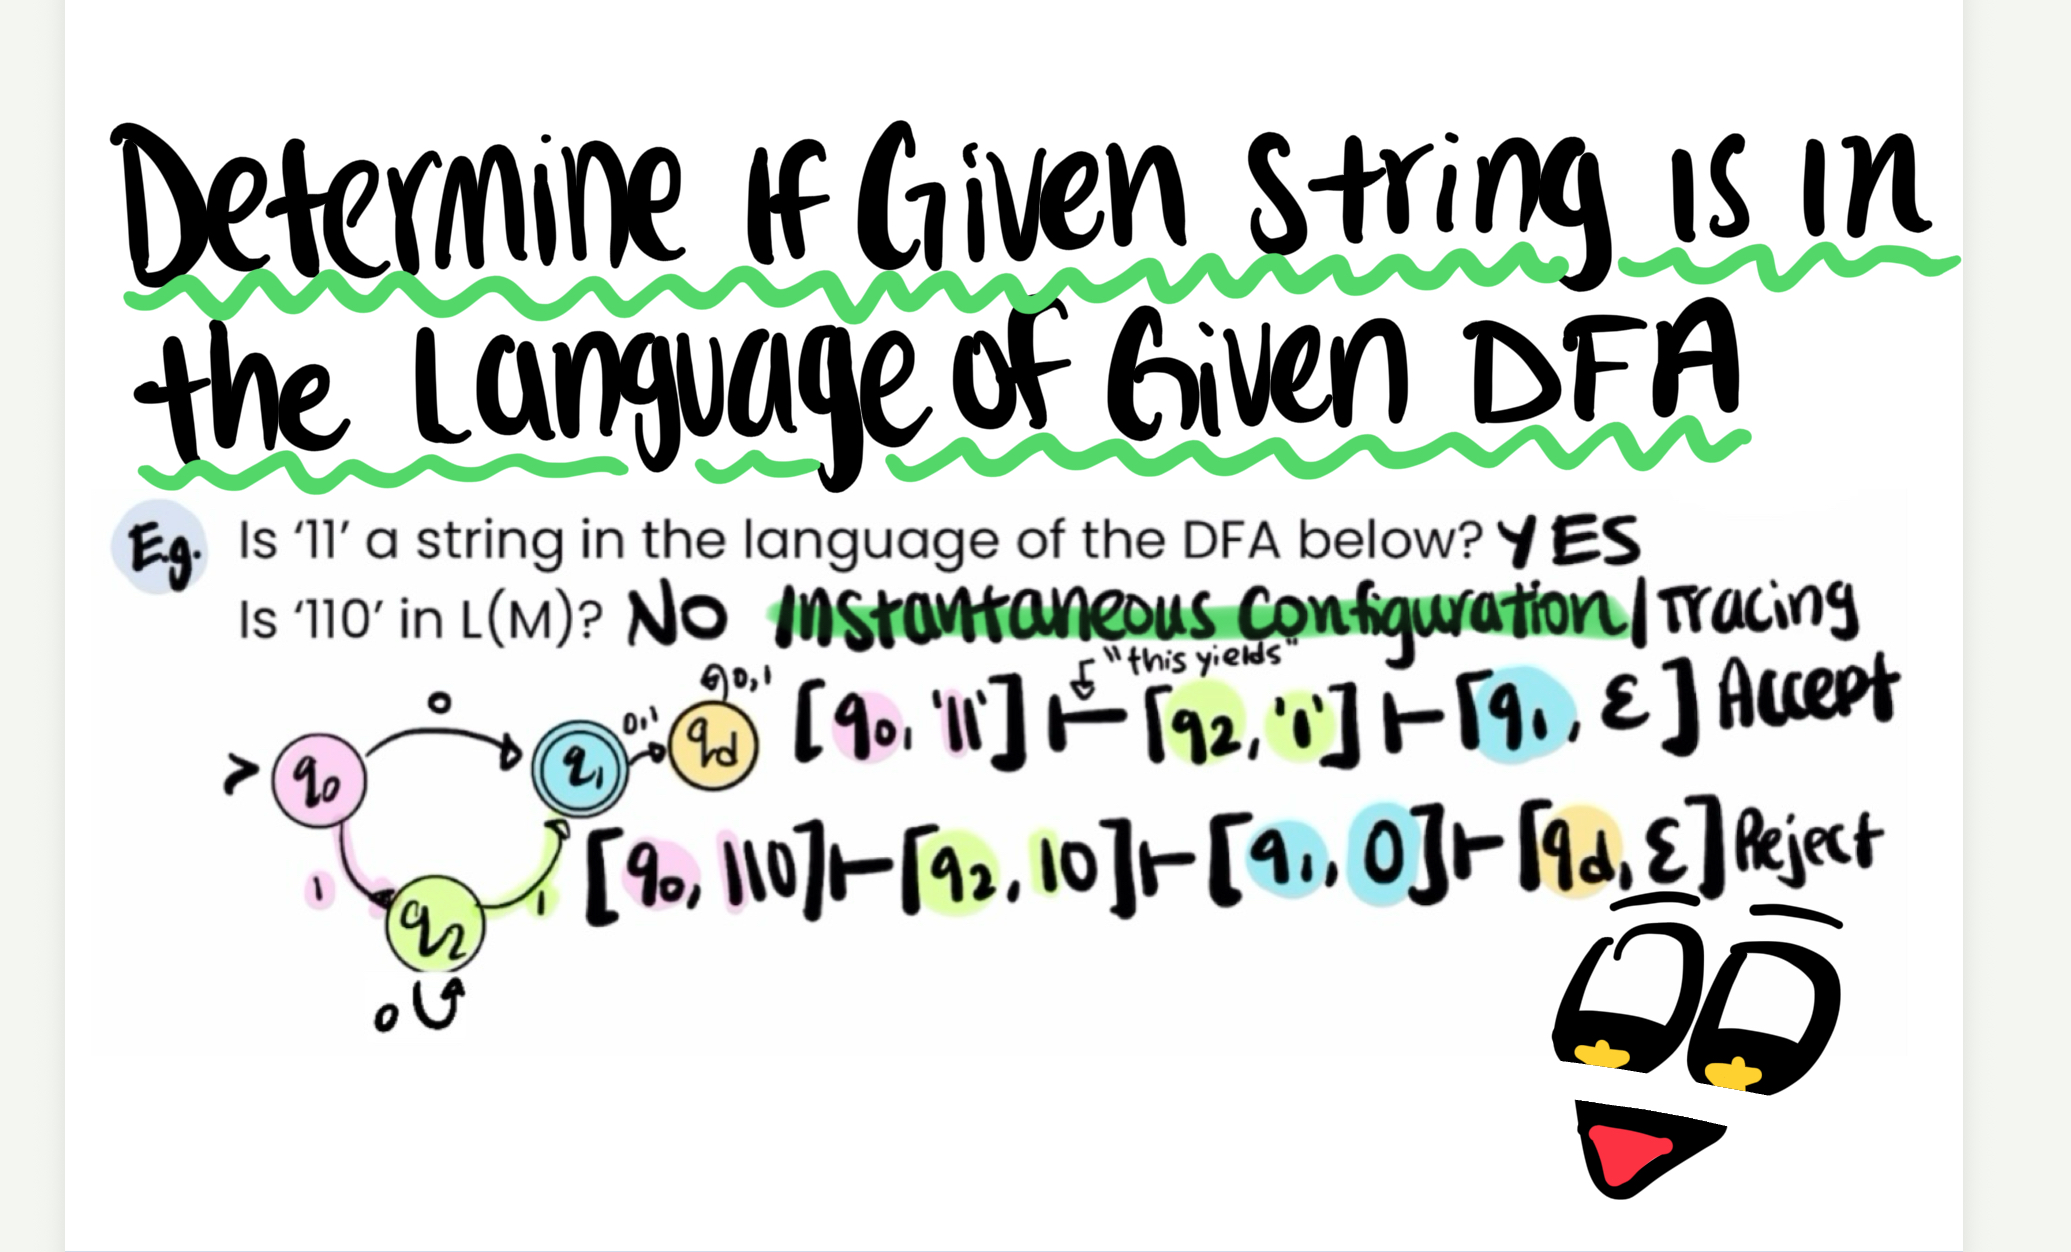 Determine If Given String is in
the Language of Given DFA
E.g. Is '11' a string in the language of the DFA below? YES
Is '110' in L(M)? NO Instantaneous Configuration/Tracing
"this yields"
[q0, '11'] ⊢ [q2, '1'] ⊢ [q1, ε] Accept
[q0, 110] ⊢ [q2, 10] ⊢ [q1, 0] ⊢ [qd, ε] Reject
0,1
0
0,1
> q0
q1
qd
1
1
q2
0